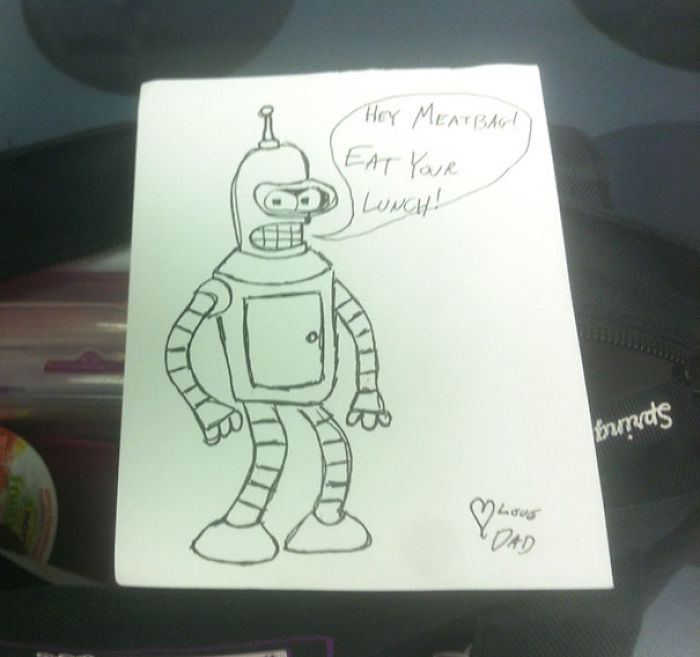 HEY MEATBAG!
EAT YOUR
LUNCH!
LOVE
DAD
Spring